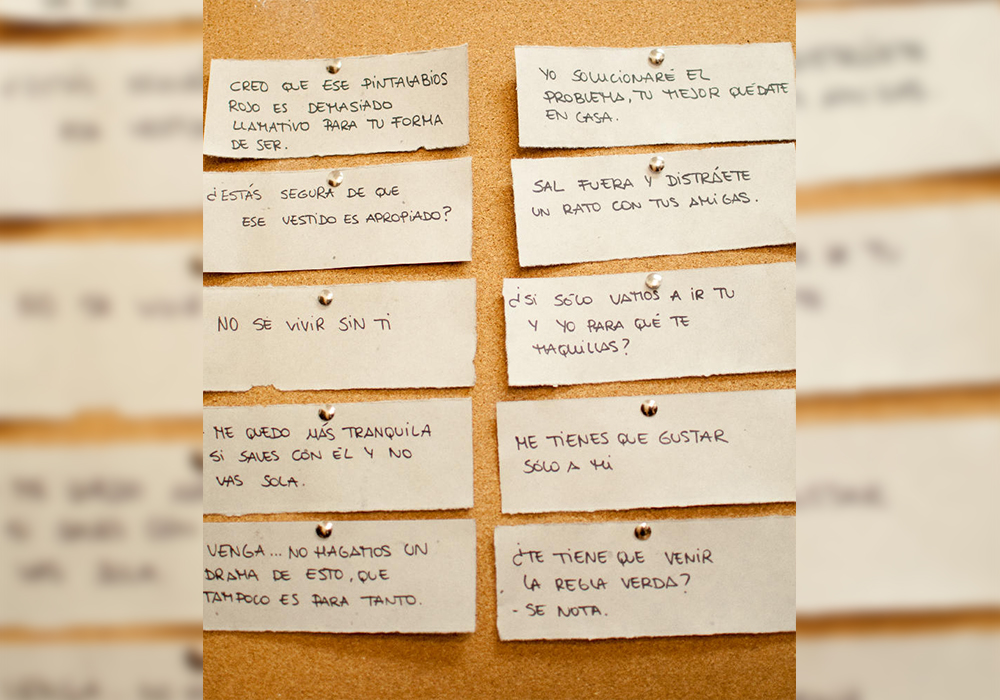 CREO QUE ESE PINTALABIOS
ROJO ES DEMASIADO
LLAMATIVO PARA TU FORMA
DE SER.
¿ESTÁS SEGURA DE QUE
ESE VESTIDO ES APROPIADO?
NO SE VIVIR SIN TI
ME QUEDO MÁS TRANQUILA
SI SALES CON ÉL Y NO
VAS SOLA.
VENGA... NO HAGAMOS UN
DRAMA DE ESTO, QUE
TAMPOCO ES PARA TANTO.
YO SOLUCIONARÉ EL
PROBLEMA, TU MEJOR QUÉDATE
EN CASA.
SAL FUERA Y DISTRÁETE
UN RATO CON TUS AMIGAS.
¿SI SÓLO VAMOS A IR TU
Y YO PARA QUÉ TE
MAQUILLAS?
ME TIENES QUE GUSTAR
SÓLO A MI
¿TE TIENE QUE VENIR
LA REGLA VERDA?
- SE NOTA.